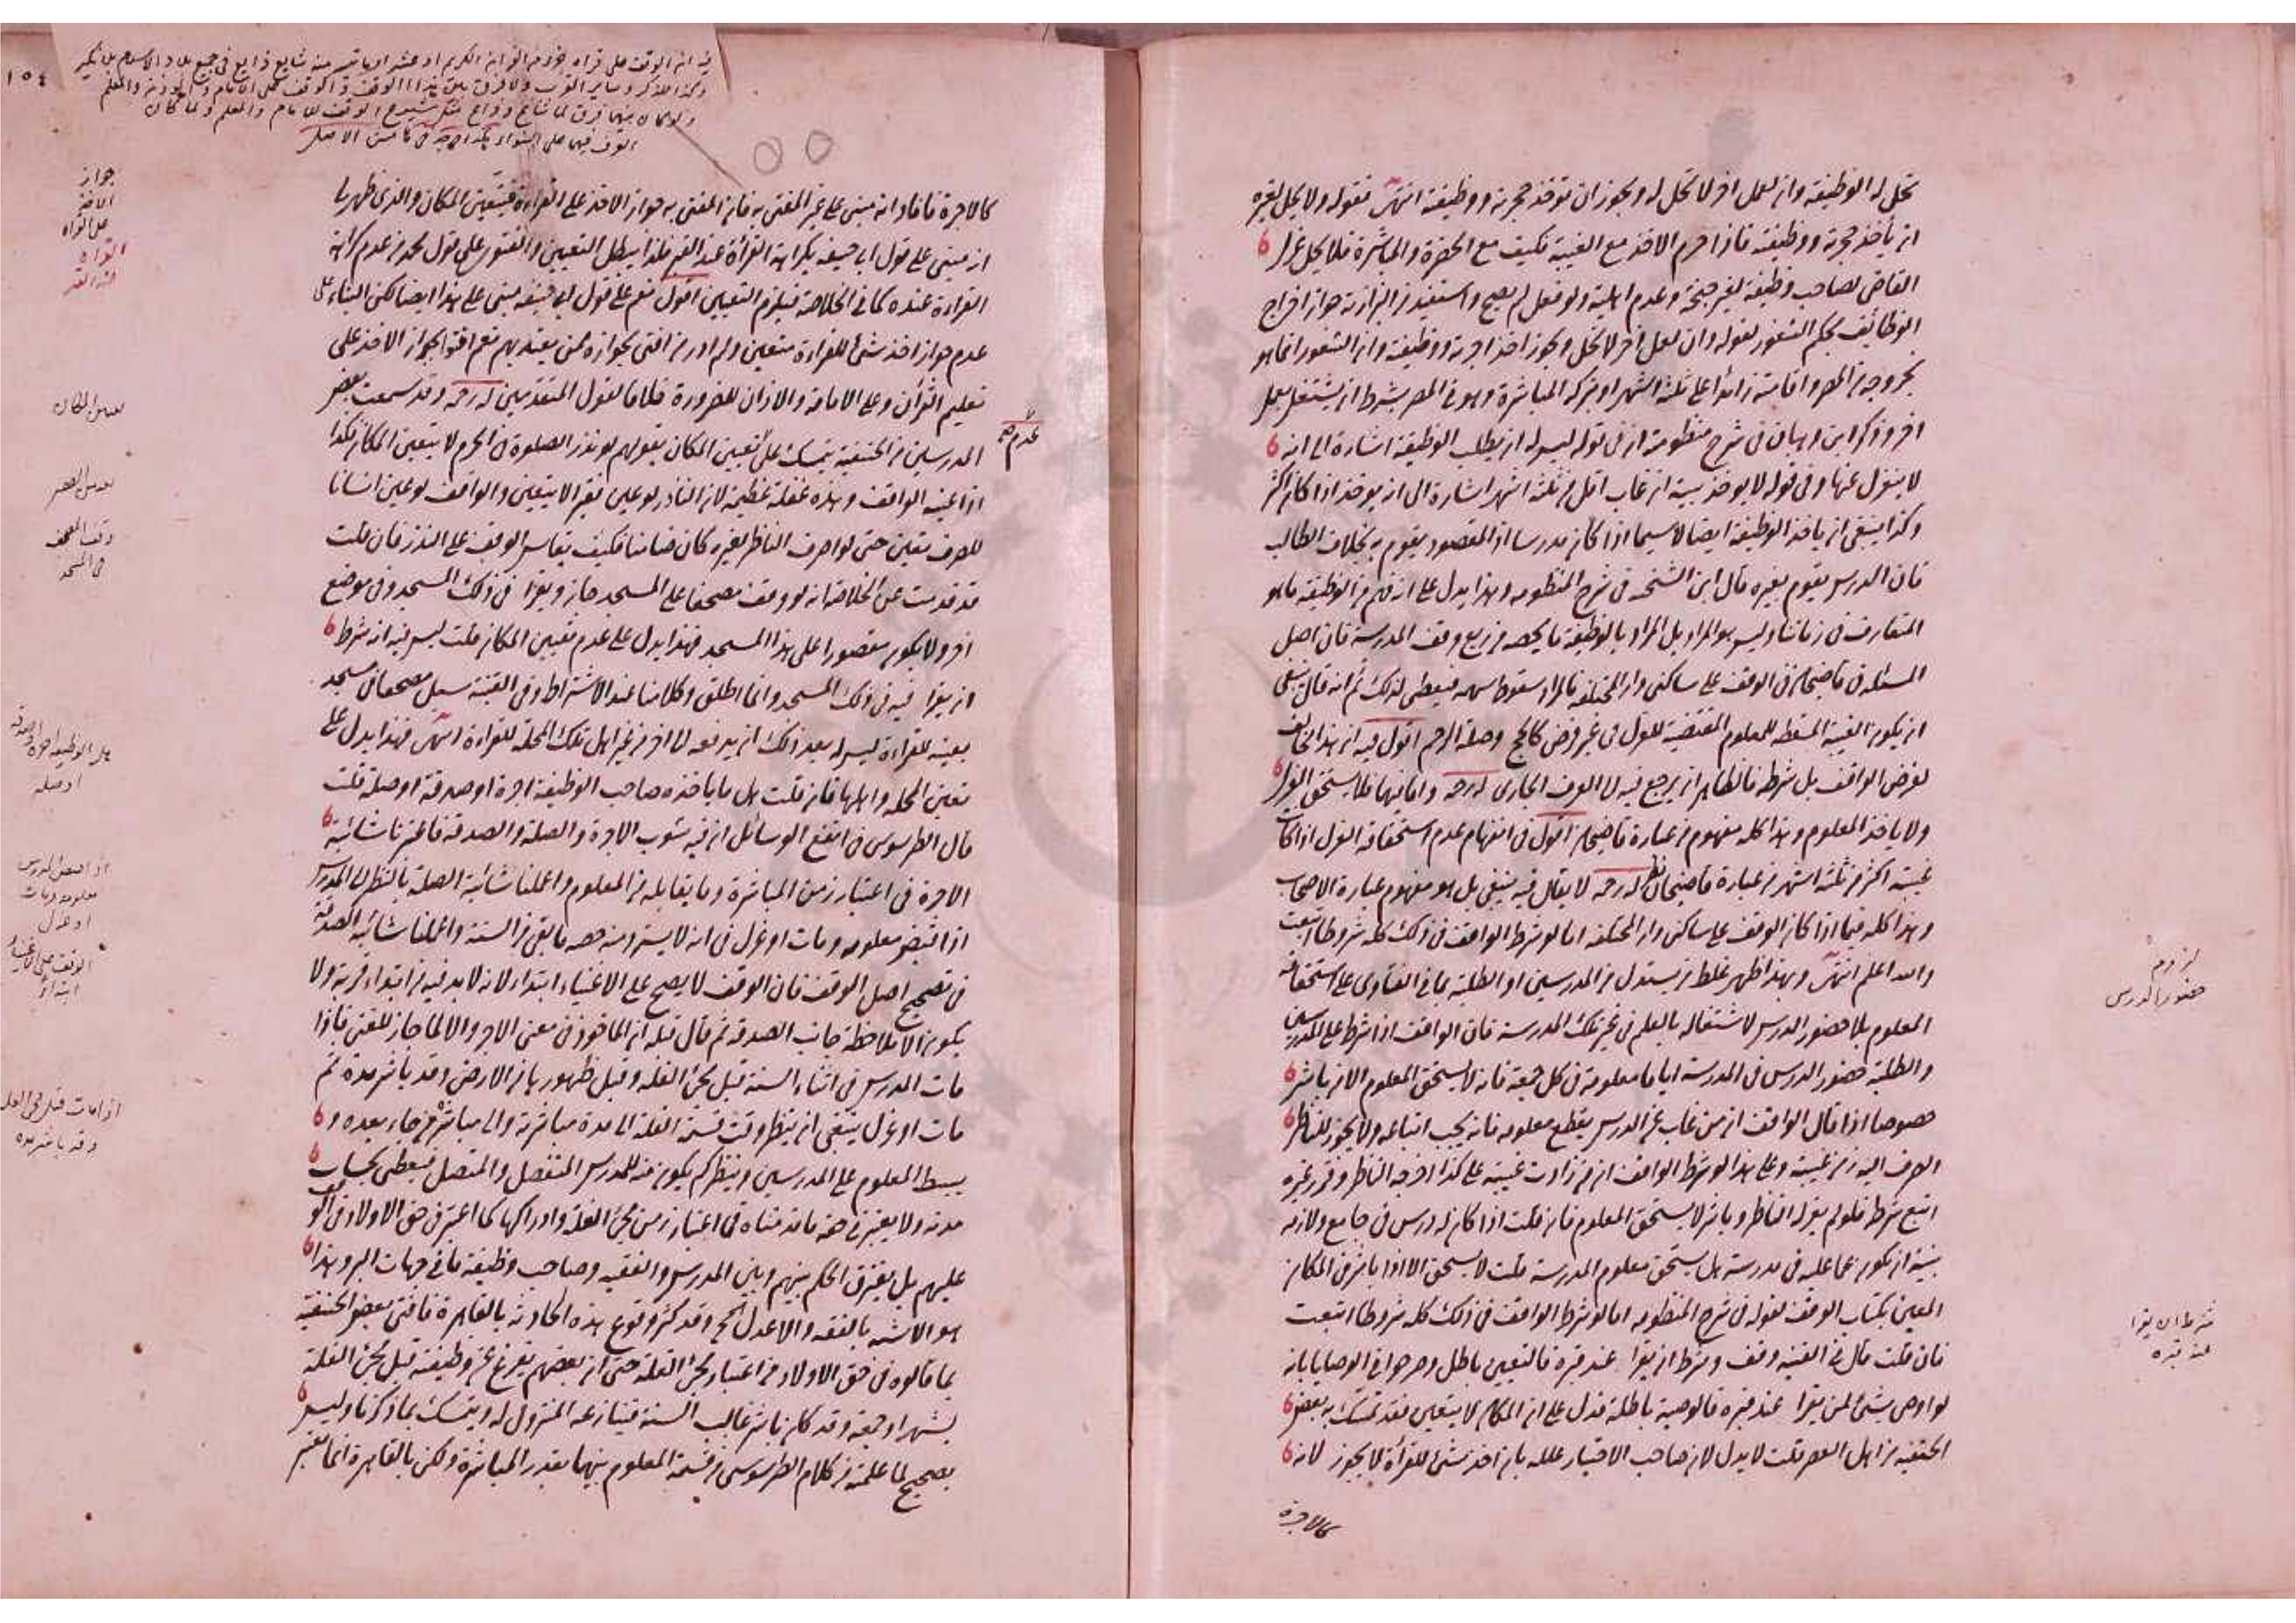 تحل له الوظيفة وان لعمل اخر لا تحل له ويجوز ان توخذ حجرته ووظيفته انتهى فقوله ولا يحل لغيره
ان يأخذ حجرته ووظيفته فاذا حرم الاخذ مع الغيبة فكيف مع الحضرة والمباشرة فلا يحل عزل
القاضى لصاحب وظيفة بغير جنحة وعدم اهلية ولو فعل لم يصح واستفيد من البزازية جواز اخراج
الوظائف بحكم الشغور لقوله وان لعمل اخر لا تحل ويجوز اخذ اجرته ووظيفته وان الشغور انما هو
بخروجه من المصر واقامته زائدا على ثلثة اشهر او بتركه المباشرة وهو فى المصر بشرط ان يشتغل بعمل
اخر وذكر ابن وهبان فى شرح منظومته ان فى قوله ليس له ان يطلب الوظيفة اشارة الى انه
لا ينعزل عنها وفى قوله لا يوخذ بيته ان غاب اقل من ثلثة اشهر اشارة الى انه يوخذ اذا كان اكثر
وكذا ينبغى ان ياخذ الوظيفة ايضا لا سيما اذا كان مدرسا اذ المقصود يقوم به بخلاف الطالب
فان الدرس يقوم بغيره قال ابن الشحنه فى شرح المنظومه وهذا يدل على انه فهم من الوظيفة ما هو
المتعارف فى زماننا وليس هو المراد بل المراد بالوظيفة ما يخصه من ريع وقف المدرسة فان اصل
المسئلة فى قاضيخان فى الوقف على ساكنى دار المختلفه فالمراد سقوط سهمه فيعطى لذلك ثم انه قال ينبغى
ان يكون الغيبة المسقطه للمعلوم المقتضية للعزل فى غير فرض كالحج وصلة الرحم اقول فيه ان هذا مخالف
لغرض الواقف بل شرطه فالظاهر ان يرجع فيه الى العرف الجارى له رحه واما فيهما فلا يستحق العزل
ولا ياخذ المعلوم وهذا كله مفهوم من عبارة قاضيخان اقول فى انفهام عدم استحقاقه العزل اذا كانت
غيبته اكثر من ثلثة اشهر من عبارة قاضيخان نظر له رحه لا يقال فيه ينبغى بل هو مفهوم عبارة الاصحاب
وهذا كله فيما اذا كان الوقف على ساكنى دار المختلفه اما لو شرط الواقف فى ذلك كله شروطا اتبعت
والله اعلم انتهى وبهذا ظهر غلط من يستدل من المدرسين او الطلبة بما فى الفتاوى على استحقاقه
المعلوم بلا حضور الدرس لاشتغاله بالعلم فى غير تلك المدرسة فان الواقف اذا شرط على المدرسين
والطلبة حضور الدرس فى المدرسة اياما معلومة فى كل جمعة فانه لا يستحق المعلوم الا من باشر
خصوصا اذا قال الواقف ان من غاب عن الدرس يقطع معلومه فانه يجب اتباعه ولا يجوز للناظر
الصرف اليه زمن غيبته وعلى هذا لو شرط الواقف ان من زادت غيبته على كذا اخرجه الناظر وقرر غيره
اتبع شرطه فلو لم يعزله الناظر وباشر لا يستحق المعلوم فان قلت اذا كان له درس فى جامع ولازمه
بنية ان يكون عما عليه فى مدرسة هل يستحق معلوم المدرسة قلت لا يستحق الا اذا باشر فى المكان
المعين بكتاب الوقف لقوله فى شرح المنظومه اما لو شرط الواقف فى ذلك كله شروطا اتبعت
فان قلت قال فى القنيه وقف وشرط ان يقرا عند قبره فالتعيين باطل وصرحوا فى الوصايا بانه
لو اوصى بشئ لمن يقرا عند قبره فالوصية باطلة فدل على ان المكان لا يتعين فقد تمسك به بعض
الحنفيه من اهل العصر قلت لا يدل لان صاحب الاختيار علله بان اخذ شئ للقرأة لا يجوز لانه
كالاجرة
لزوم
حضور الدرس
شرط ان يقرا
عند قبره
١٥٤
كالاجرة فافاد انه مبنى على غير المفتى به فان المفتى به جواز الاخذ على القراءة فيتعين المكان والذى ظهر لى
انه مبنى على قول ابى حنيفه بكراهة القرأة عند القبر فلذا يبطل التعيين والفتوى على قول محمد من عدم كراهة
القراءة عنده كما فى الخلاصة فيلزم التعيين اقول نعم على قول ابى حنيفه مبنى على هذا ايضا لكن البناء على
عدم جواز اخذ شئ للقراءة متعين ولم ادر من افتى بجوازه ممن يعتد بهم نعم افتوا بجواز الاخذ على
تعليم القرأن وعلى الامامة والاذان للضرورة خلافا لقول المتقدمين له رحه وقد سمعت بعض
المدرسين من الحنفية يتمسك على تعيين المكان بقولهم لو نذر الصلوة فى الحرم لا يتعين المكان فكذا
عدم صح
اذا عينه الواقف وهذه غفلة عظيمة لان الناذر لو عين فقيرا لا يتعين والواقف لو عين انسانا
للصرف تعين حتى لو صرف الناظر لغيره كان ضامنا فكيف يقاس الوقف على النذر فان قلت
قد قدمت عن الخلاصة انه لو وقف مصحفا على المسجد جاز ويقرا فى ذلك المسجد وفى موضع
اخر ولا يكون مقصورا على هذا المسجد فهذا يدل على عدم تعيين المكان قلت ليس فيه انه شرط
ان يقرا فيه فى ذلك المسجد وانما اطلق وكلامنا عند الاشتراط وفى القنية سبل مصحفا فى مسجد
بعينه للقراءة ليس له بعد ذلك ان يدفعه الى اخر من غير اهل تلك المحلة للقراءة انتهى فهذا يدل على
تعين المحله واهلها فان قلت هل ما ياخذه صاحب الوظيفة اجرة او صدقة او صلة قلت
قال الطرسوسى فى انفع الوسائل ان فيه شوب الاجرة والصلة والصدقة فاعتبرنا شائبة
الاجرة فى اعتبار زمن المباشرة وما يقابله من المعلوم واعملنا شائبة الصلة بالنظر الى المدرس
اذا قبض معلومه ومات او عزل فى انه لا يسترد منه حصة ما بقى من السنة واعملنا شائبة الصدقة
فى تصحيح اصل الوقف فان الوقف لا يصح على الاغنياء ابتداء لانه لا بد فيه من ابتداء قربة ولا
يكون الا بملاحظة جانب الصدقة ثم قال قبله ان الماخوذ فى معنى الاجر والا لما جاز للغنى فاذا
مات المدرس فى اثناء السنة قبل مجئ الغله وقبل ظهورها من الارض وقد باشر مدة ثم
مات او عزل ينبغى ان ينظر وقت قسمة الغلة الى مدة مباشرته والى مباشرة من جاء بعده و
يبسط المعلوم على المدرسين وينظر كم يكون منه للمدرس المنفصل والمتصل فيعطى بحساب
مدته ولا يعتبر فى حقه ما قدمناه فى اعتبار زمن مجئ الغلة وادراكها كما اعتبر فى حق الاولاد فى الوقف
عليهم بل يفترق الحكم بينهم وبين المدرس والفقيه وصاحب وظيفة ما فى جهات البر وهذا
هو الاشبه بالفقه والاعدل الخ وقد كثر وقوع هذه الحادثة بالقاهرة فافتى بعض الحنفية
بما قالوه فى حق الاولاد من اعتبار مجئ الغلة حتى ان بعضهم يفرغ عن وظيفته قبل مجئ الغلة
بشهر او جمعة وقد كان باشر غالب السنة فينازعه المنزول له ويتمسك بما ذكرنا وليس
بصحيح لما علمته من كلام الطرسوسى من قسمة المعلوم بينهما بقدر المباشرة ولكن بالقاهرة انما يعتبر
جواز
الاخذ
على القراه
القراه
عند القبر
وقف المصحف
فى المسجد
هل الوظيفه اجره او صدقه
او صله
اذا قبض المدرس
معلومه ومات
او عزل
الوقف على الاغنياء
ابتداء
اذا مات قبل مجئ الغله
وقد باشر مده